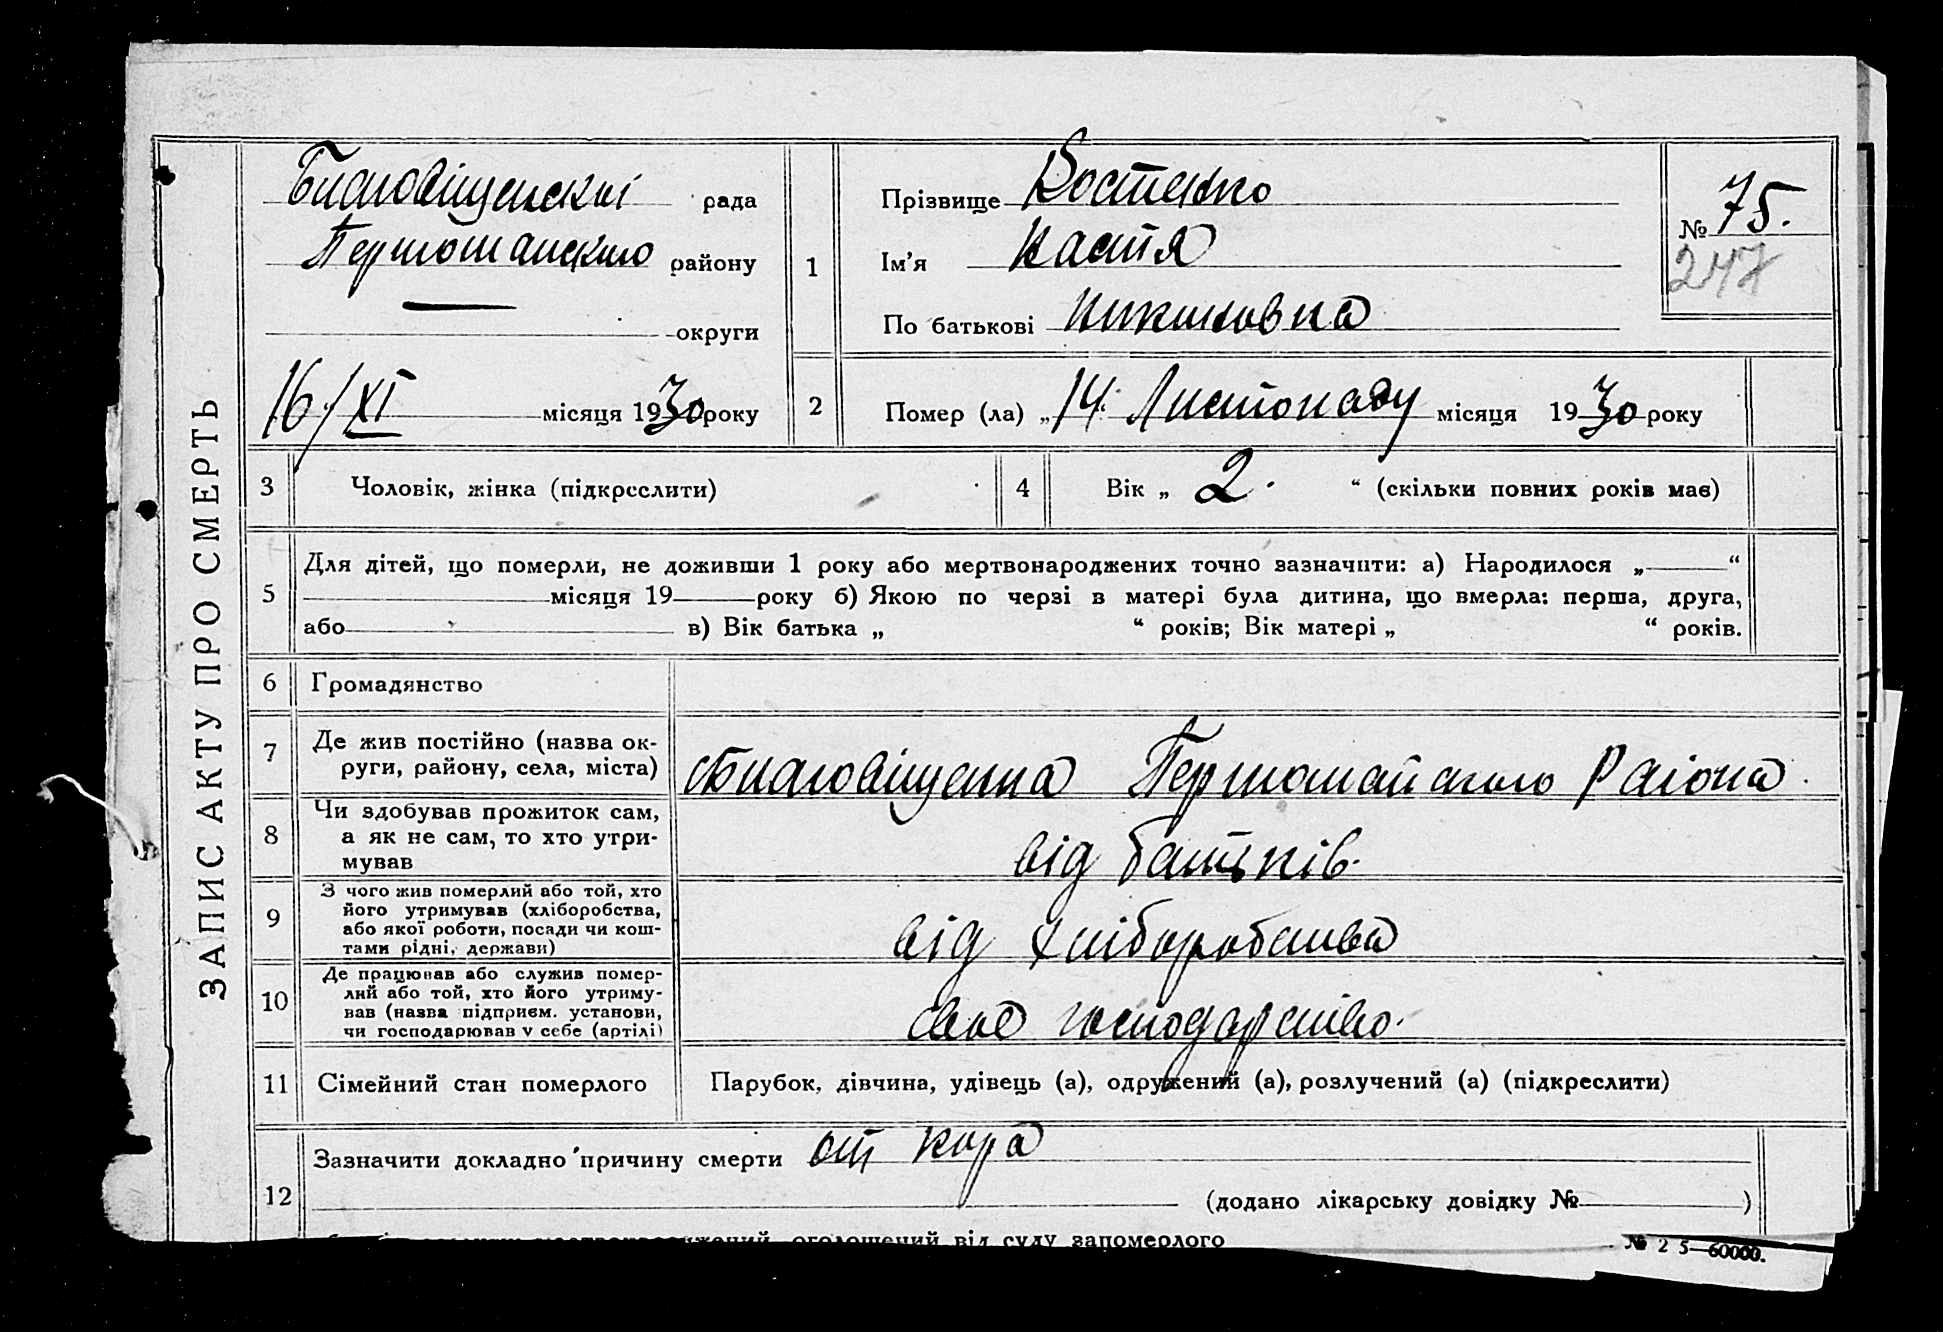 ЗАПИС АКТУ ПРО СМЕРТЬ
Благовіщенскої рада
району
округи
16/XI місяця 1930 року
1
Прізвище Костенко
Ім'я Настя
По батькові
№ 75.
247
2
Помер (ла) „14“ Листопаду місяця 1930 року
3
Чоловік, жінка (підкреслити)
4
Вік „ 2. “ (скільки повних років має)
5
Для дітей, що померли, не доживши 1 року або мертвонароджених точно зазначити: а) Народилося „ “
місяця 19 року б) Якою по черзі в матері була дитина, що вмерла: перша, друга,
або в) Вік батька „ “ років; Вік матері „ “ років.
6
Громадянство
7
Де жив постійно (назва ок-
руги, району, села, міста)
Благовіщенка Першомайского Раіона
8
Чи здобував прожиток сам,
а як не сам, то хто утри-
мував
від батьків.
9
З чого жив померлий або той, хто
його утримував (хліборобства,
або якої роботи, посади чи кош-
тами рідні, держави)
від хліборобства
10
Де працював або служив помер-
лий або той, хто його утриму-
вав (назва підприєм. установи,
чи господарював у себе (артілі)
своє господарство.
11
Сімейний стан померлого
Парубок, дівчина, удівець (а), одружений (а), розлучений (а) (підкреслити)
12
Зазначити докладно причину смерти от кора
(додано лікарську довідку № )
оголошений від суду запомерлого
№ 2 5—60000.